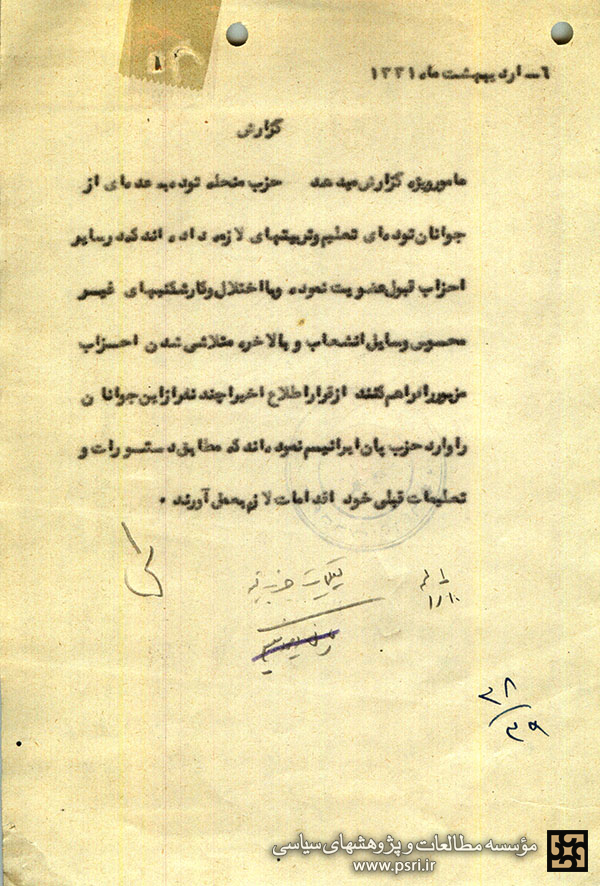 ۱۴
۶ــ اردیبهشت ماه ۱۳۳۱
گزارش
مامورویژه گزارش میدهد حزب منحله توده بعده ای از
جوانان توده ای تعلیم وتربیتهای لازمه داده اند که در سایر
احزاب قبول عضویت نموده وبا اختلال وکارشکنیهای غیر
محسوس وسایل انشعاب و بالاخره متلاشی شدن احزاب
مزبور را فراهم کنند از قرار اطلاع اخیرا چند نفر از این جوانان
را وارد حزب پان ایرانیسم نموده اند که مطابق دستورات و
تعلیمات قبلی خود اقدامات لازم بعمل آورند .
۱/۱۰
۳۸
۳۹
مؤسسه مطالعات و پژوهشهای سیاسی
www.psri.ir